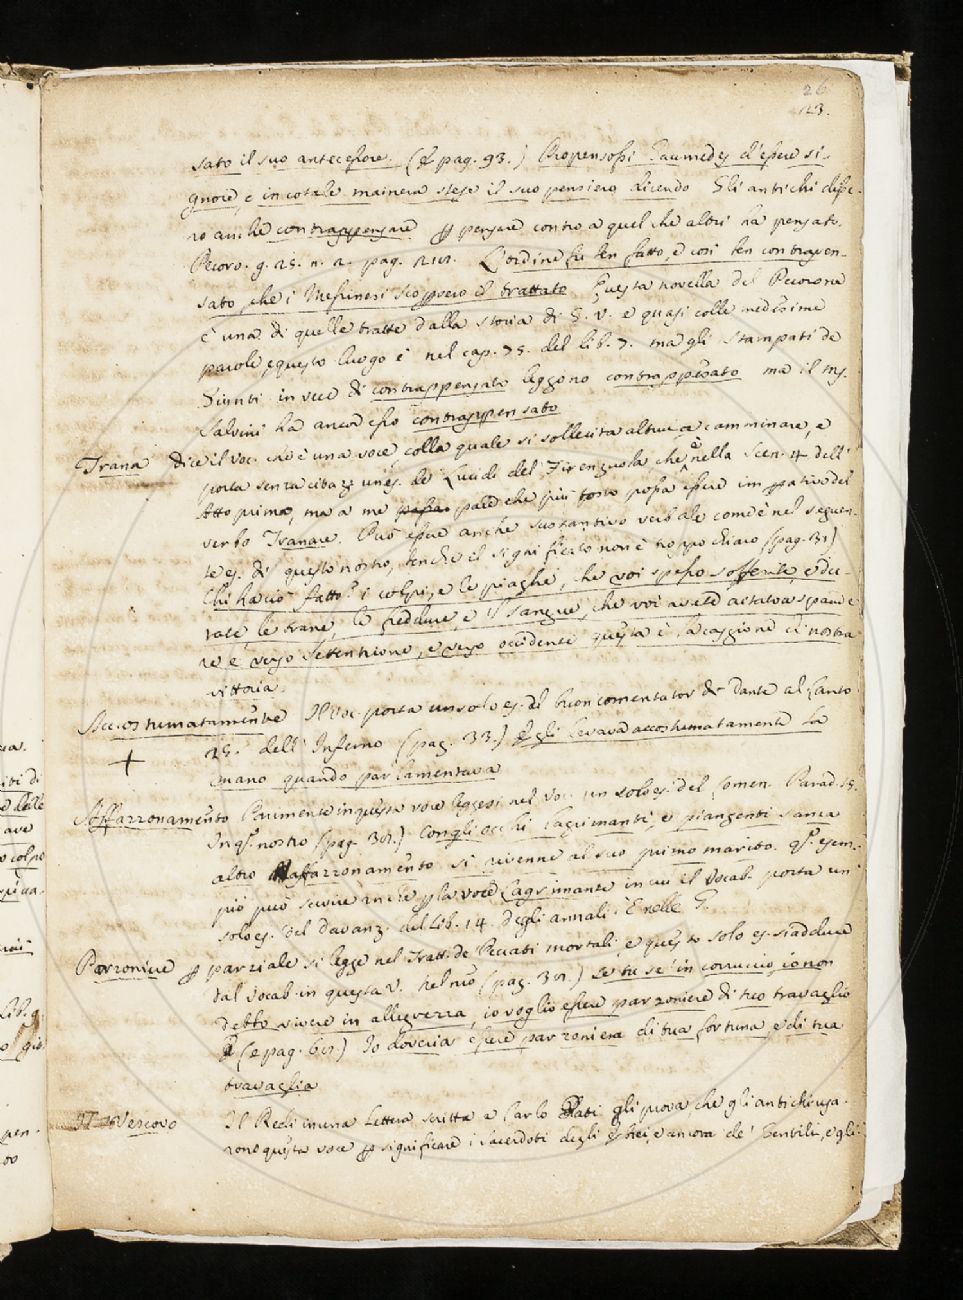 26
123.
sato il suo antecessore. (E pag. 93.) Propensossi Laumedes d'essere si-
gnore, e in cotale mainera stese il suo pensiero dicendo Gli antichi disse-
ro anche contrappensare p pensare contro a quel che altri ha pensato.
Pecoro. g. 25. n. 2. pag. 212. L'ordine fu ben fatto, e così ben contrapen-
sato, che i Messinesi scopersero il trattato Questa novella del Pecorone
è una di quelle tratte dalla storia di G. V. e quasi colle medesime
parole, e questo luogo è nel cap. 75. del lib. 7. ma gli stampati de
Giunti in vece di contrappensato leggono contrappesato ma il ms.
Salvini ha ancor esso contrappensato
Trana dice il Voc. ch'è una voce colla quale si sollecita altrui a camminare, e
porta senza citaz. un es. de' Lucidi del Firenzuola che è nella Scen. 4 dell'
Atto primo, ma a me pare che più tosto possa essere imperativo del
verbo Tranare. Può essere anche sustantivo verbale com'è nel seguen-
te es. di questo nostro, benchè il significato non è troppo chiaro (pag. 31)
Chi ha ciò fatto? i colpi, e le piaghe, che voi spesso sofferite, e du-
rate le trane, le fredure, e il sangue, che voi avete astato a spande
re e verso settentrione, e verso occidente questa è la cagione di nostra
vittoria.
Accostumatamente Il Voc. porta un solo es. del buon comentator di Dante al Canto
25. dell'Inferno (pag. 33.) Egli levava accostumatamente la
mano quando parlamentava
+
Affazzonamento Parimente in questa voce leggesi nel Voc. un solo es. del Comen. Parad. 15.
In q.o nostro (pag. 36.) Con gli occhi lagrimanti, e piangenti sanza
altro affazzonamento si rivenne al suo primo marito. q.o esem-
pio può servire anche p la voce Lagrimante in cui il Vocab. porta un
solo es. del Davanz. del Lib. 14. degli annali. E nelle G.
Parzoniere p parziale si legge nel Tratt. de Peccati mortali, e questo solo es. si adduce
dal Vocab. in questa V. Nel nro (pag. 36.) Se tu se' in corruccio, io non
debbo vivere in allegrezza, io voglio essere parzoniere di tuo travaglio
E (e pag. 60.) Io dovria essere parzoniera di tua fortuna e di tua
travaglia
Vescovo Il Redi in una lettera scritta a Carlo Dati gli prova che gli antichi usa-
rono questa voce p significare i sacerdoti degli Ebrei e ancora de' Gentili, e gli